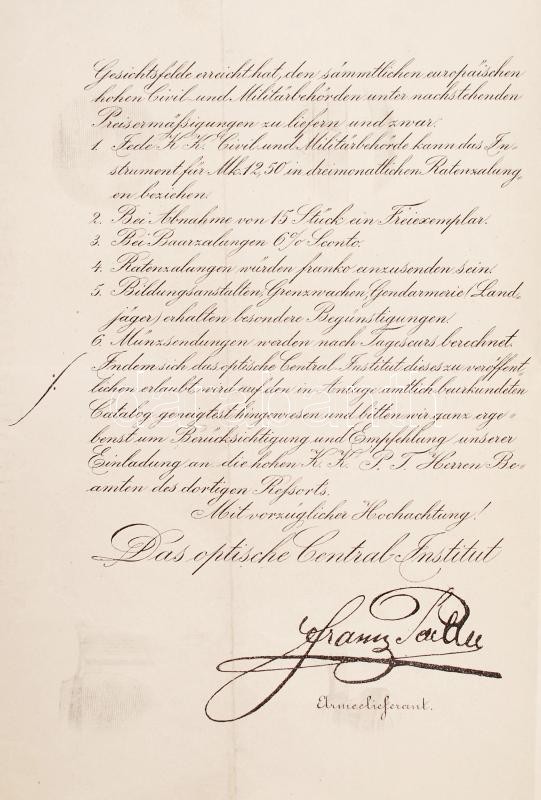 Gesichtsfelde erreicht hat, den sämmtlichen europäischen
hohen Civil- und Militärbehörden unter nachstehenden
Preisermäßigungen zu liefern und zwar:
1. Jede K. K. Civil und Militärbehörde kann das In-
strument für Mk. 12,50 in dreimonatlichen Ratenzalung
en beziehen.
2. Bei Abnahme von 15 Stück ein Freiexemplar.
3. Bei Baarzalungen 6% Sconto.
4. Ratenzalungen würden franko einzusenden sein.
5. Bildungsanstalten, Grenzwachen, Gendarmerie (Land-
jäger) erhalten besondere Begünstigungen.
6. Münzsendungen werden nach Tagescurs berechnet.
Indem sich das optische Central-Institut dieses zu veröffent
lichen erlaubt, wird auf den in Anlage amtlich beurkundeten
Catalog geneigtest hingewiesen und bitten wir ganz erge-
benst um Berücksichtigung und Empfehlung unserer
Einladung an die hohen K. K. P. T. Herren Be-
amten des dortigen Reßsorts.
Mit vorzüglicher Hochachtung!
Das optische Central-Institut
Franz
Armeelieferant.